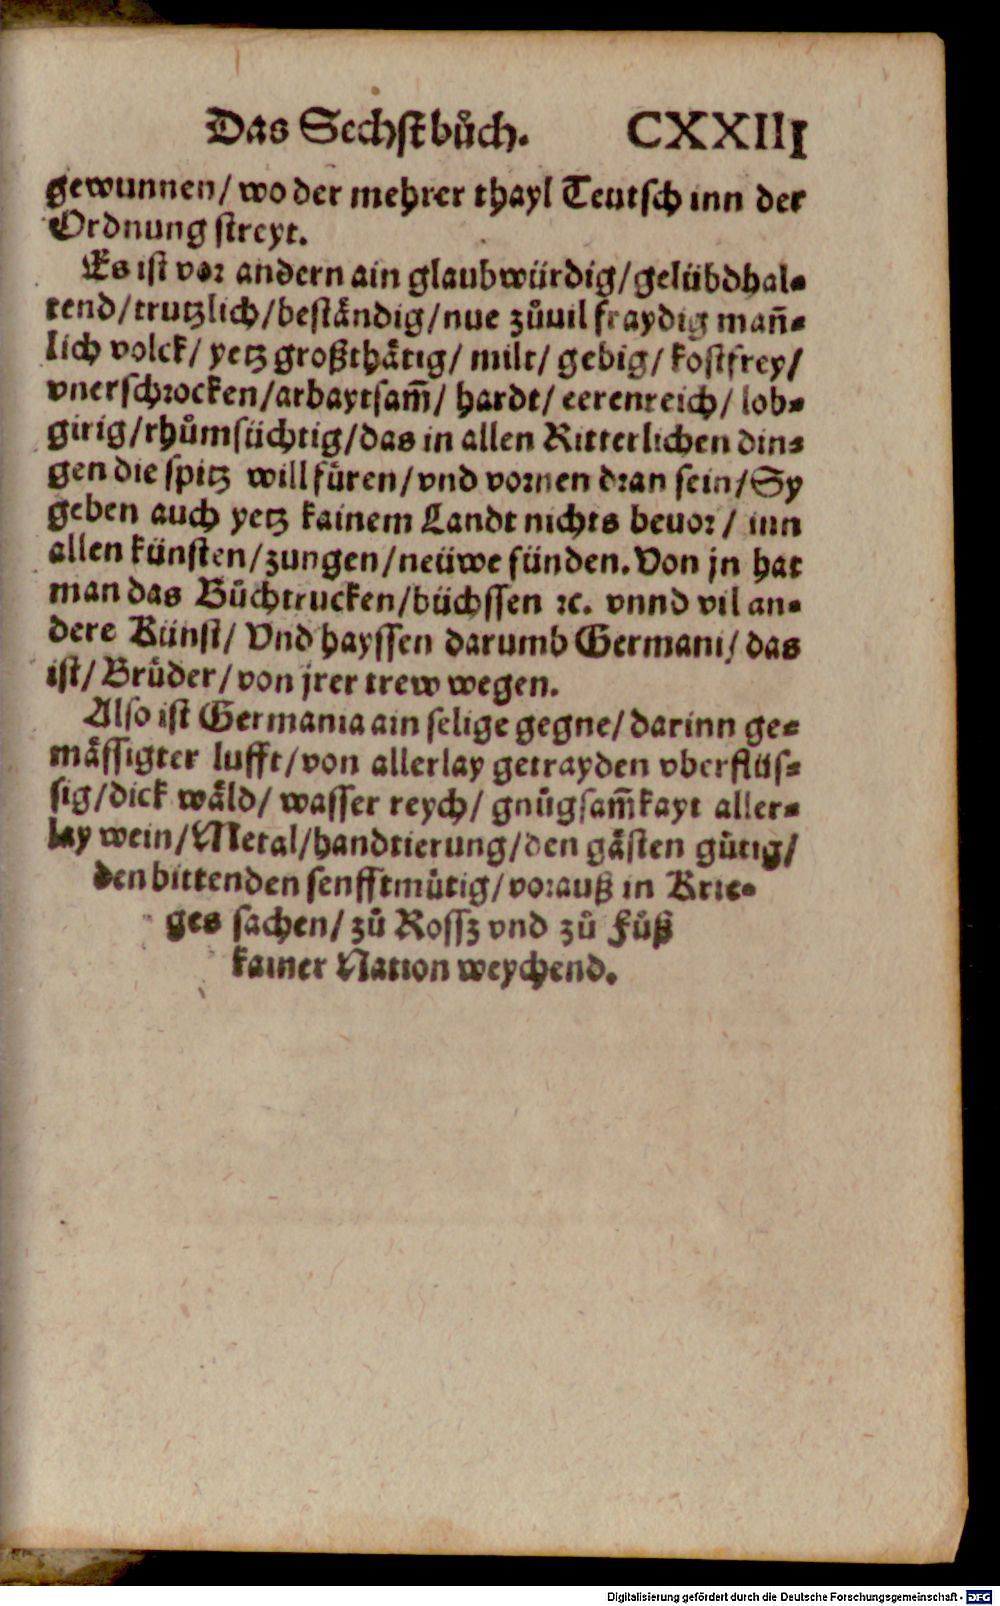 Das Sechst bůch. CXXIIII
gewunnen/ wo der mehrer thayl Teutsch inn der
Ordnung streyt.
Es ist vor andern ain glaubwürdig/gelübdhal⸗
tend/trutzlich/beständig/nue zůuil fraydig mañ⸗
lich volck/ yetz großthätig/ milt/ gebig/ kostfrey/
vnerschrocken/arbaytsam̃/ hardt/ eerenreich/ lob⸗
girig/rhůmsüchtig/das in allen Ritterlichen din⸗
gen die spitz will füren/vnd vornen dran sein/Sy
geben auch yetz kainem Landt nichts beuor/ inn
allen künsten/zungen/neüwe fünden. Von jn hat
man das Bůchtrucken/büchssen ꝛc. vnnd vil an⸗
dere Künst/ Vnd hayssen darumb Germani/ das
ist/ Brüder/von jrer trew wegen.
Also ist Germania ain selige gegne/ darinn ge⸗
mässigter lufft/von allerlay getrayden vberflüs⸗
sig/dick wäld/ wasser reych/ gnůgsam̃kayt aller⸗
lay wein/Metal/handtierung/den gästen gütig/
den bittenden senfftmütig/vorauß in Krie⸗
ges sachen/ zů Rossz vnd zů Fůß
kainer Nation weychend.
Digitalisierung gefördert durch die Deutsche Forschungsgemeinschaft - DFG